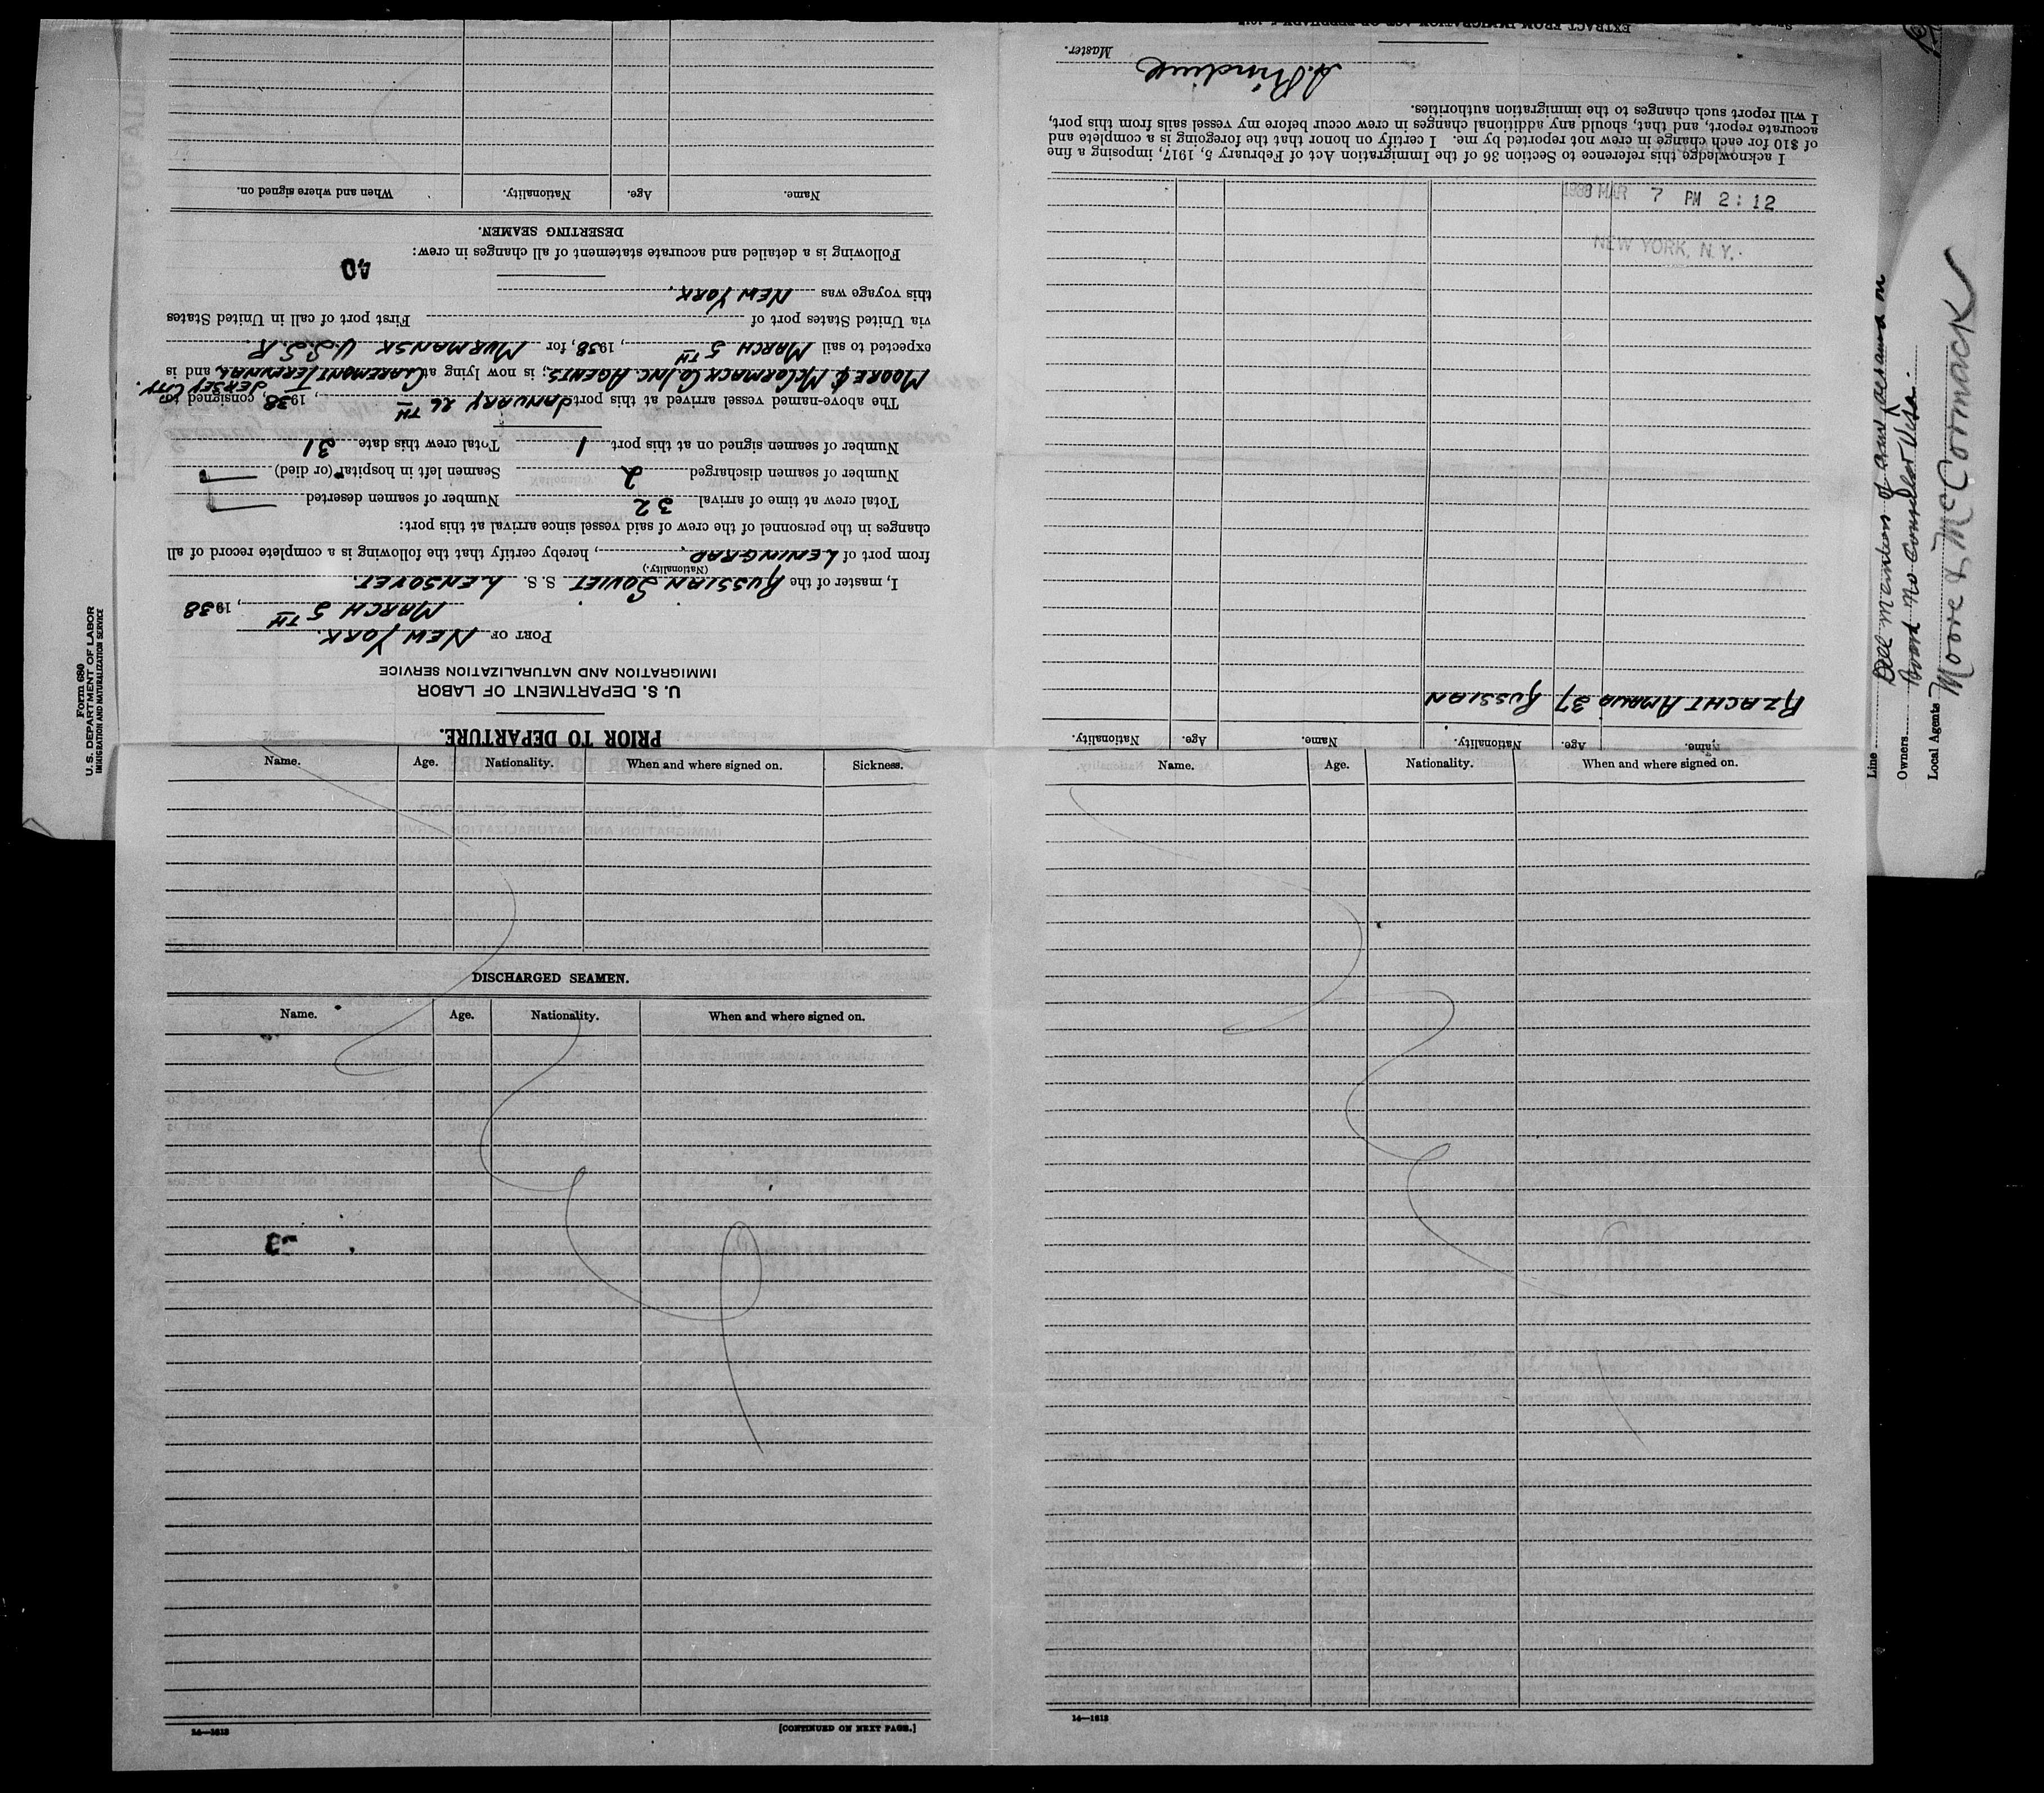 PRIOR TO DEPARTURE.
U. S. DEPARTMENT OF LABOR
IMMIGRATION AND NATURALIZATION SERVICE
PORT OF NEW YORK.
MARCH 5TH, 1938
I, master of the RUSSIAN SOVIET S. S. LENSOVET.
(Nationality.)
from port of LENINGRAD, hereby certify that the following is a complete record of all
changes in the personnel of the crew of said vessel since arrival at this port:
Total crew at time of arrival 32 Number of seamen deserted
Number of seamen discharged 2 Seamen left in hospital (or died)
Number of seamen signed on at this port 1 Total crew this date 31
The above-named vessel arrived at this port JANUARY 26TH, 1938, consigned to
MOORE & MCCORMACK CO. INC. AGENTS; is now lying at CLAREMONT TERMINAL JERSEY CITY. and is
expected to sail MARCH 5TH, 1938, for MURMANSK U.S.S.R.
via United States port of First port of call in United States
this voyage was NEW YORK.
40
Following is a detailed and accurate statement of all changes in crew:
DESERTING SEAMEN.
Name. Age. Nationality. When and where signed on.
Name. Age. Nationality. When and where signed on. Sickness.
DISCHARGED SEAMEN.
Name. Age. Nationality. When and where signed on.
14—1613
[CONTINUED ON NEXT PAGE.]
Name. Age. Nationality. Name. Age. Nationality.
37 RUSSIAN
NEW YORK, N. Y.
1938 MAR 7 PM 2:12
I acknowledge this reference to Section 36 of the Immigration Act of February 5, 1917, imposing a fine
of $10 for each change in crew not reported by me. I certify on honor that the foregoing is a complete and
accurate report, and that, should any additional changes in crew occur before my vessel sails from this port,
I will report such changes to the immigration authorities.
Master.
EXTRACT FROM IMMIGRATION ACT OF FEBRUARY 5, 1917
Name. Age. Nationality. When and where signed on.
14—1613
Form 680
U. S. DEPARTMENT OF LABOR
IMMIGRATION AND NATURALIZATION SERVICE
Line All members of crew on
Owners Board No Consular Visa.
Local Agents Moore & McCormack